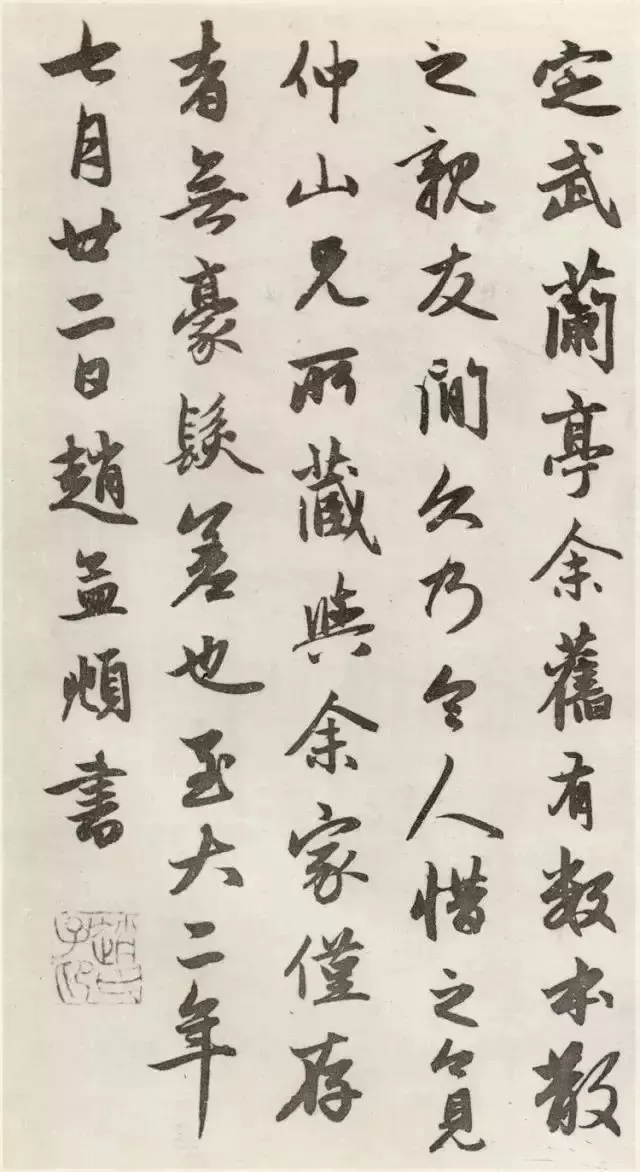 定武蘭亭余舊有數本散
之親友間久乃令人惜之今見
仲山兄所藏與余家僅存
者無豪髮差也至大二年
七月廿二日趙孟頫書
趙氏子昂